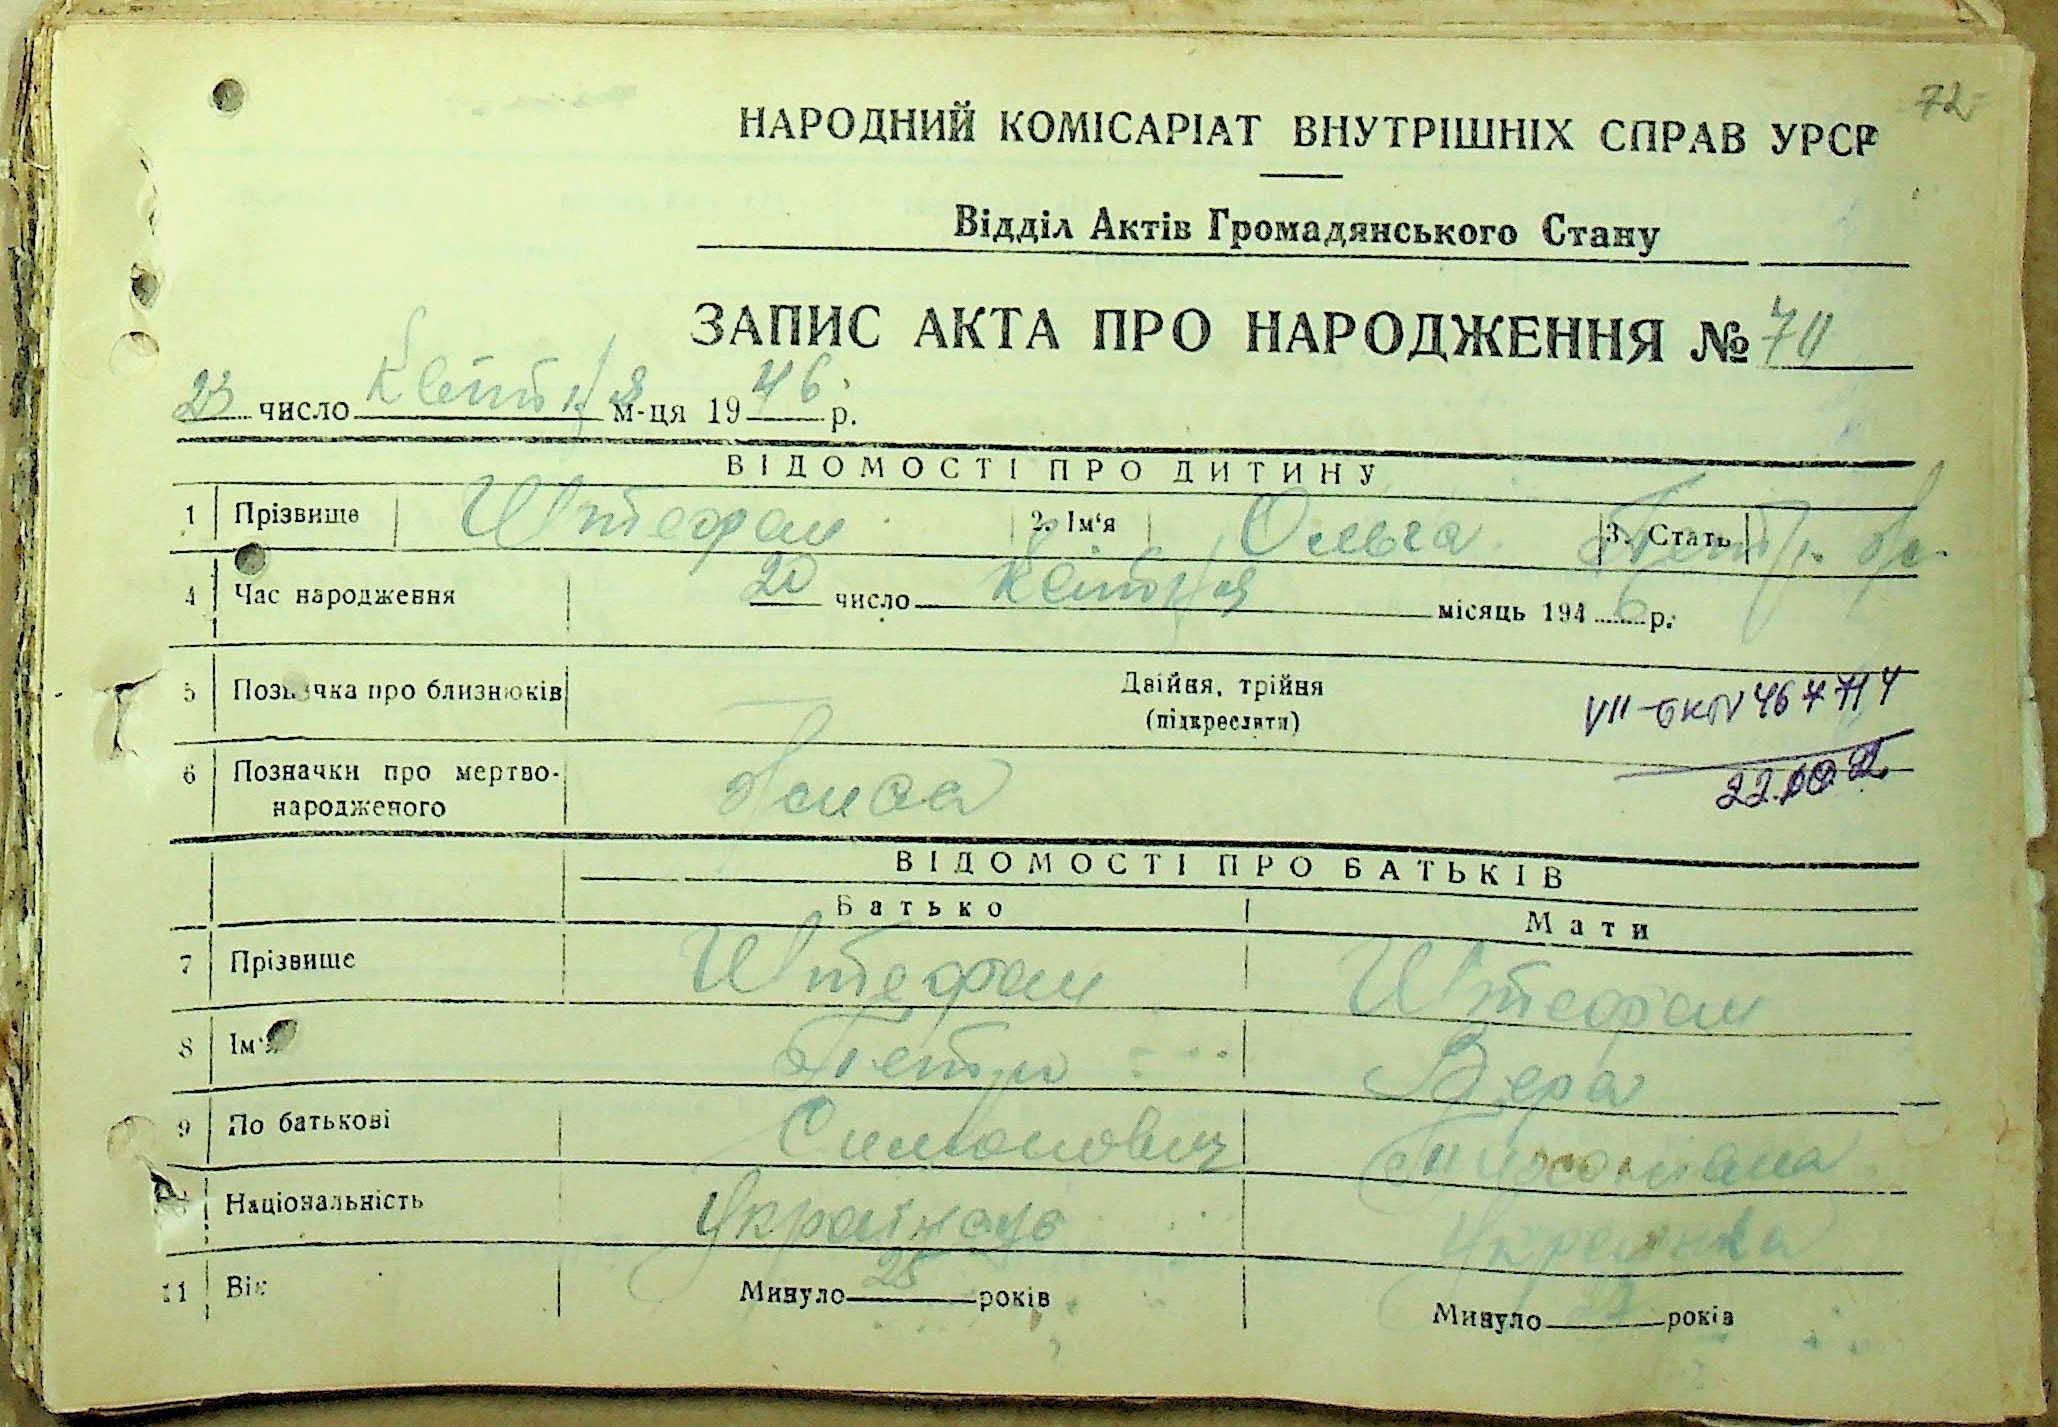 72
НАРОДНИЙ КОМІСАРІАТ ВНУТРІШНІХ СПРАВ УРСР
Відділ Актів Громадянського Стану
ЗАПИС АКТА ПРО НАРОДЖЕННЯ № 70
23 число квітня м-ця 1946 р.
ВІДОМОСТІ ПРО ДИТИНУ
1 Прізвище Штефан 2. Ім‘я Ольга 3. Стать
4 Час народження 20 число квітня місяць 1946 р.
5 Позначка про близнюків Двійня, трійня
(підкреслити)
6 Позначки про мертво-
народженого
ВІДОМОСТІ ПРО БАТЬКІВ
Батько Мати
7 Прізвище Штефан Штефан
8 Ім‘я Петро Вера
9 По батькові Симонович
Національність Українець Українка
11 Вік Минуло 25 років Минуло років